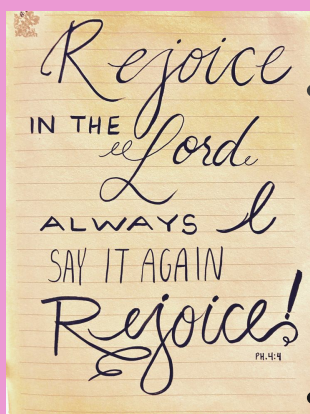 Rejoice
IN THE
Lord
ALWAYS I
SAY IT AGAIN
Rejoice!
PH.4:4